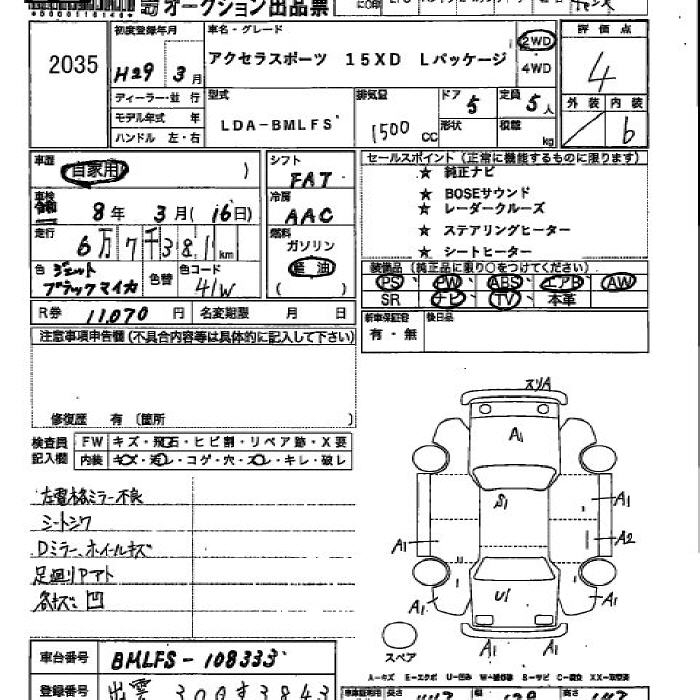 オークション出品票
2035
初度登録年月
H29年3月
車名・グレード
アクセラスポーツ 15XD Lパッケージ
2WD
4WD
評価点
4
外装 内装
6
ディーラー・並行
モデル年式 年
ハンドル 左・右
型式
LDA-BMLFS
排気量
1500 CC
ドア 5
形状
定員 5人
積載 kg
車歴
自家用 )
車検
令和 8年 3月(16日)
走行
6万7千381km
色 ジェットブラックマイカ
色替
色コード
41W
シフト
FAT
冷房
AAC
燃料
ガソリン
軽油
( )
セールスポイント(正常に機能するものに限ります)
★ 純正ナビ
★ BOSEサウンド
★ レーダークルーズ
★ ステアリングヒーター
★ シートヒーター
装備品(純正品に限り○をつけてください)
PS PW ABS エアB AW
SR ナビ TV 本革
R券 11,070 円 名変期限 月 日
新車保証書 後日品
有・無
注意事項申告欄(不具合内容等は具体的に記入して下さい)
修復歴 有(箇所 )
検査員記入欄
FW キズ・飛石・ヒビ割・リペア跡・X要
内装 キズ・汚レ・コゲ・穴・スレ・キレ・破レ
左電格ミラー不良
シートシワ
Dミラー、ホイールキズ
各キズ凹
スリA
A1
S1
A1
A1
A2
A1
U1
A1
A1
A1
A1
スペア
A-キズ E-エクボ U-凹み W-補修跡 S-サビ C-腐食 XX-交換済
車台番号 BMLFS-108333
登録番号 出雲 300す3843
長さ 幅 高さ